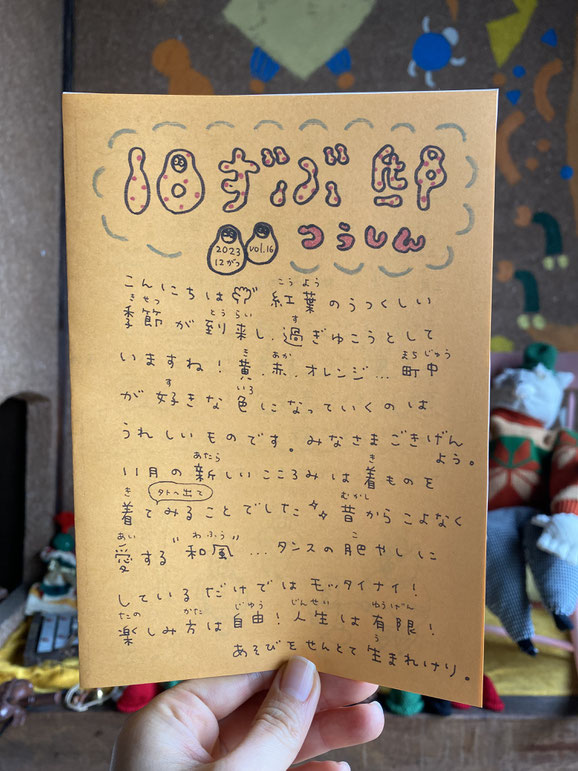 つうしん
2023
12がつ
vol.16
こうよう
こんにちは 紅葉のうつくしい
きせつ とうらい す
季節が到来し、過ぎゆこうとして
き あか まちじゅう
いますね！黄、赤、オレンジ…町中
す いろ
が好きな色になっていくのは
うれしいものです。みなさまごきげん
よう。
あたら き
11月の新しいこころみは着ものを
き 外へ出て むかし
着てみることでした 昔からこよなく
あい わふう こ
愛する"和風"…タンスの肥やしに
しているだけではモッタイナイ！
たの かた じゆう じんせい ゆうげん
楽しみ方は自由！人生は有限！
う
あそびをせんとて生まれけり。